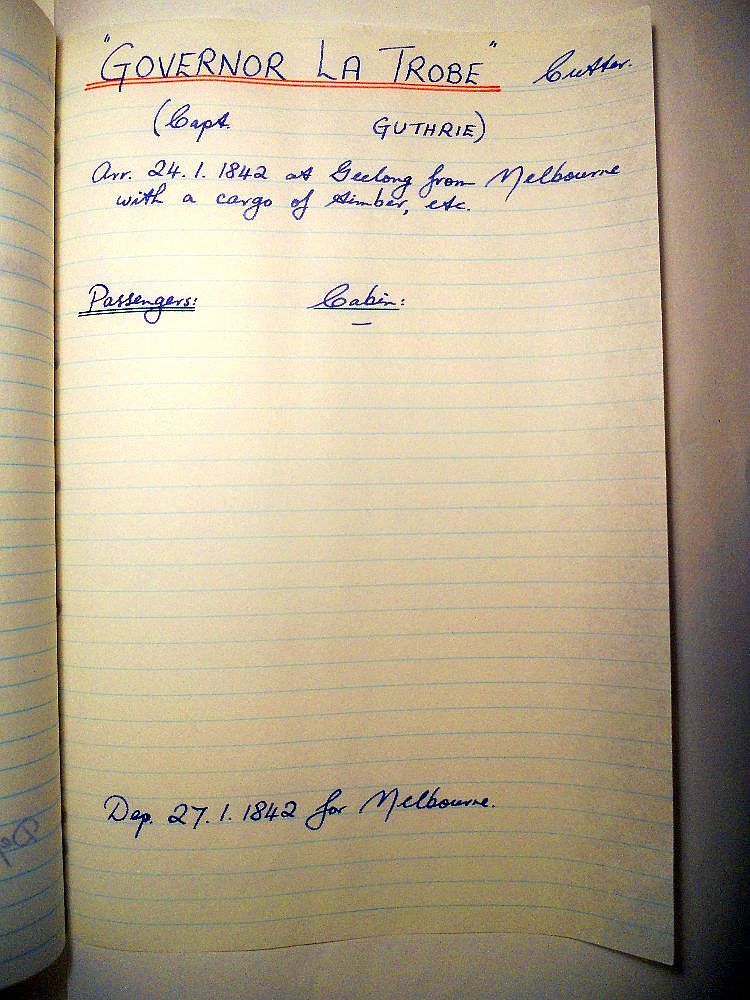 "GOVERNOR LA TROBE" Cutter.
(Capt. GUTHRIE)
Arr. 24.1.1842 at Geelong from Melbourne
with a cargo of timber, etc.
Passengers: Cabin:
—
Dep. 27.1.1842 for Melbourne.
Dep